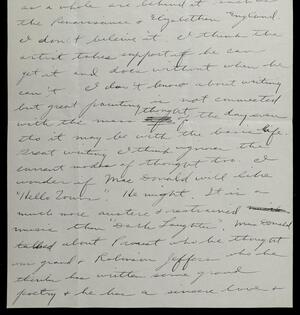 as a whole are behind it such as
the Renaissance & Elizabethan England.
I don't believe it. I think the
artist takes support if he can
get it and does without when he
can't. I don't know about writing
but great painting is not connected
with the mass thought of the day even
tho it may be with the basic life.
Great writing I think ignores the
current modes of thought too. I
wonder if MacDonald will like
"Hello Towns". He might. It is a
much more austere & restrained
music than Dark Laughter. MacDonald
talked about Proust who he thought
was grand & Robinson Jeffers who he
thinks has written some grand
poetry & he has a sincere love &